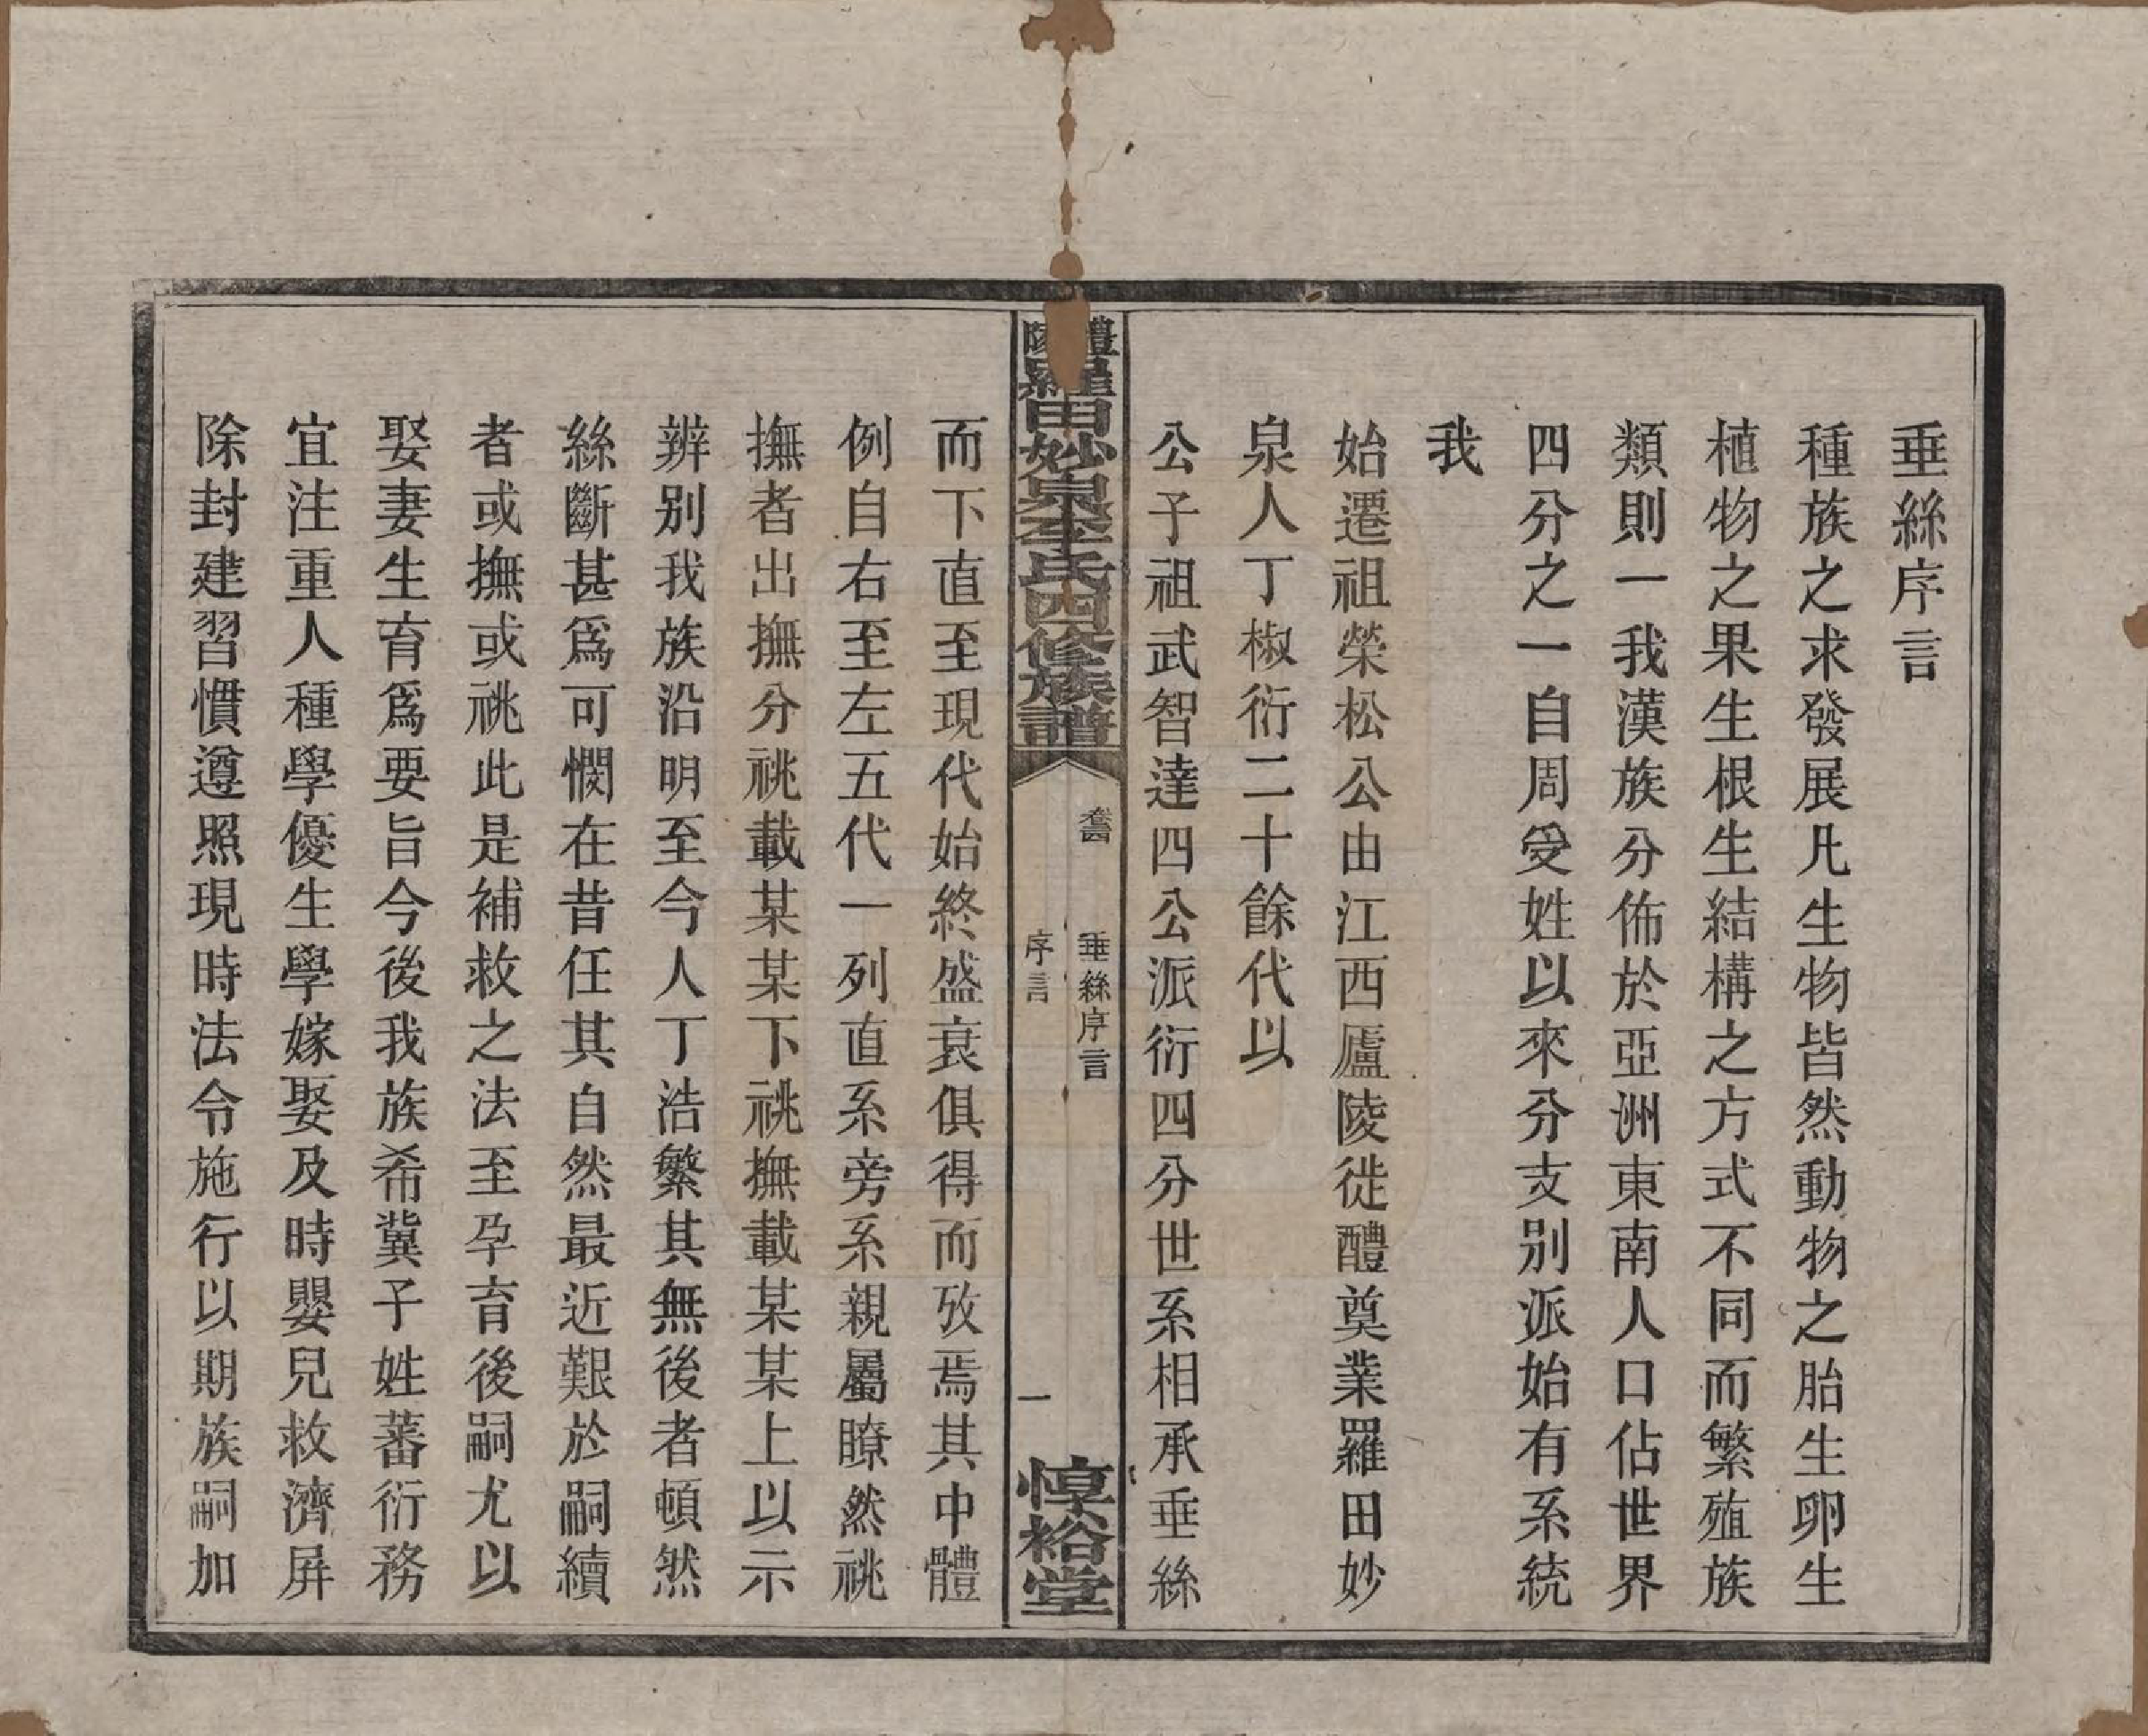 垂絲序言
種族之求發展凡生物皆然動物之胎生卵生
植物之果生根生結構之方式不同而繁殖族
類則一我漢族分佈於亞洲東南人口佔世界
四分之一自周受姓以來分支別派始有系統
我
始遷祖榮松公由江西廬陵徙醴奠業羅田妙
泉人丁椒衍二十餘代以
公子祖武智達四公派衍四分世系相承垂絲
醴陵羅田妙泉李氏四修族譜
垂絲序言
序言
一
惇裕堂
而下直至現代始終盛衰俱得而攷焉其中體
例自右至左五代一列直系旁系親屬瞭然祧
撫者出撫分祧載某某下祧撫載某某上以示
辨別我族沿明至今人丁浩繁其無後者頓然
絲斷甚爲可憫在昔任其自然最近艱於嗣續
者或撫或祧此是補救之法至孕育後嗣尤以
娶妻生育爲要旨今後我族希冀子姓蕃衍務
宜注重人種學優生學嫁娶及時嬰兒救濟屏
除封建習慣遵照現時法令施行以期族嗣加